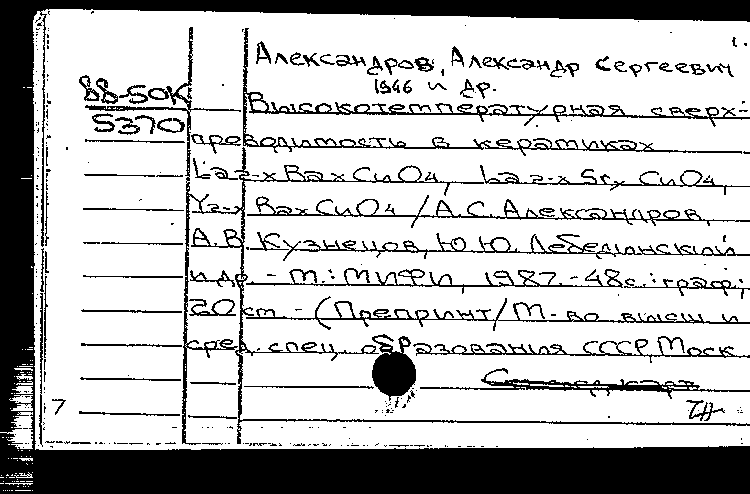 1.
Александров, Александр Сергеевич
1946 и др.
88-50К
5370
Высокотемпературная сверх-
проводимость в керамиках
La2-xBaxCuO4, La2-xSrxCuO4,
Y2-xBaxCuO4 / А.С. Александров,
А.В. Кузнецов, Ю.Ю. Лебединский
и др. - М.: МИФИ, 1987. - 48с.: граф;
20 см. - (Препринт/М-во высш и
сред. спец. образования СССР, Моск
7